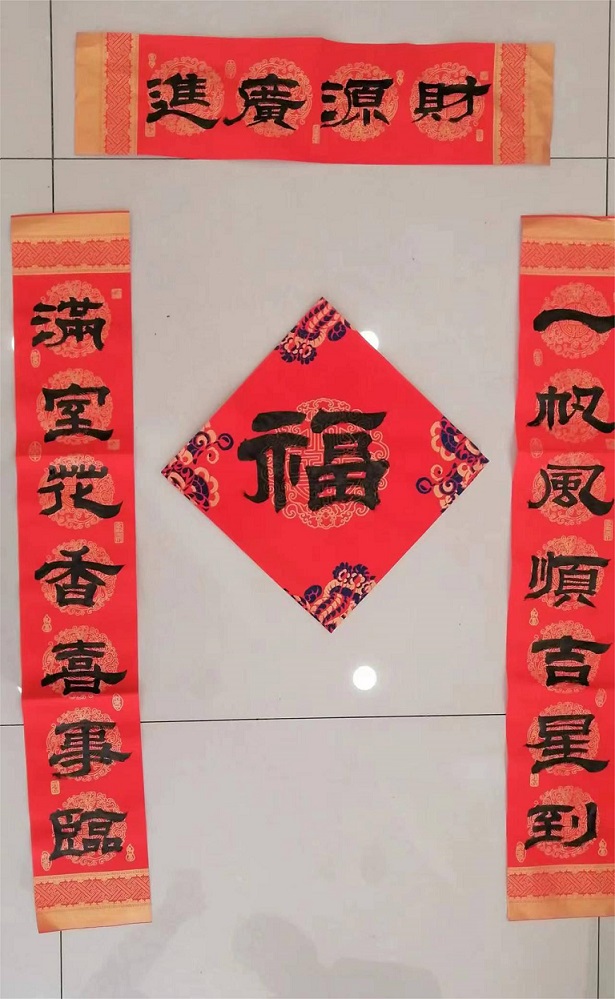 財源廣進
一帆風順吉星到
滿室花香喜事臨
福